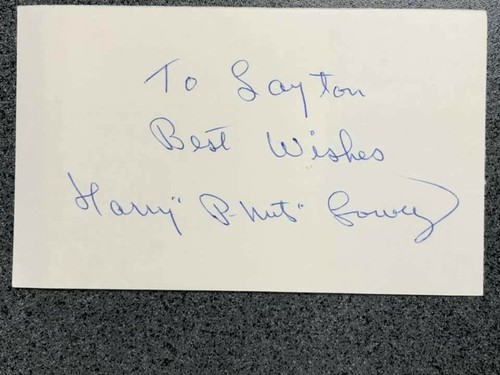 To Layton
Best Wishes
Harry "P-Nuts" Lowrey